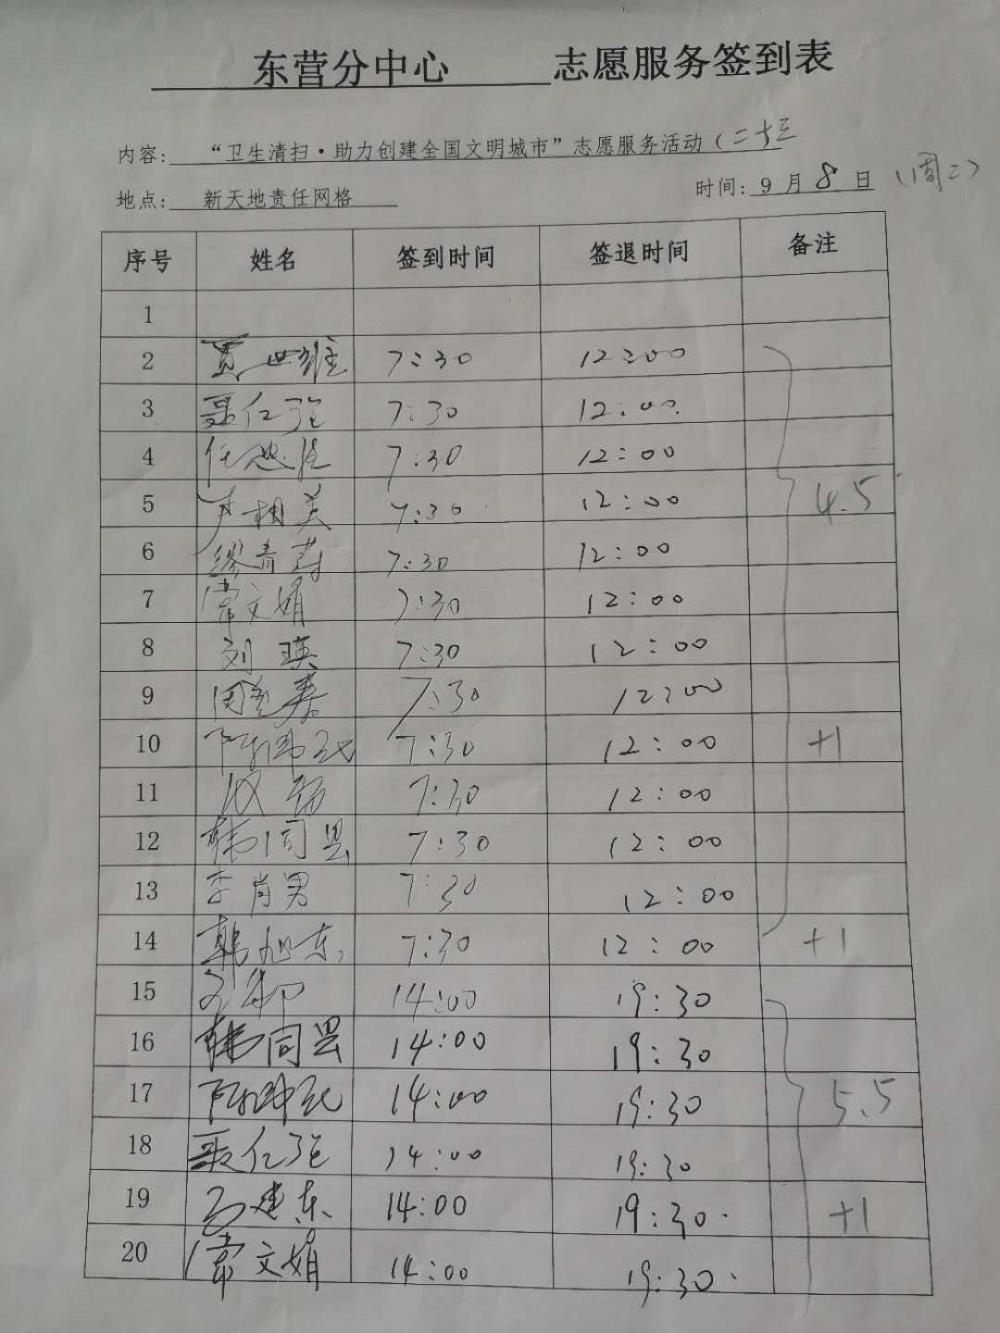 东营分中心 志愿服务签到表
内容: “卫生清扫·助力创建全国文明城市”志愿服务活动(二十三
地点: 新天地责任网格 时间: 9 月 8 日 (周二)
序号 姓名 签到时间 签退时间 备注
1
2 贾世雄 7:30 12:00
3 聂仁强 7:30 12:00
4 任 7:30 12:00
5 尹相美 7:30 12:00 4.5
6 缪青 7:30 12:00
7 常文娟 7:30 12:00
8 刘瑛 7:30 12:00
9 周 春 7:30 12:00
10 陈 7:30 12:00 +1
11 7:30 12:00
12 韩同昙 7:30 12:00
13 李肖男 7:30 12:00
14 韩旭东 7:30 12:00 +1
15 14:00 19:30
16 韩同昙 14:00 19:30
17 陈 14:00 19:30 5.5
18 聂仁强 14:00 19:30
19 建东 14:00 19:30 +1
20 常文娟 14:00 19:30